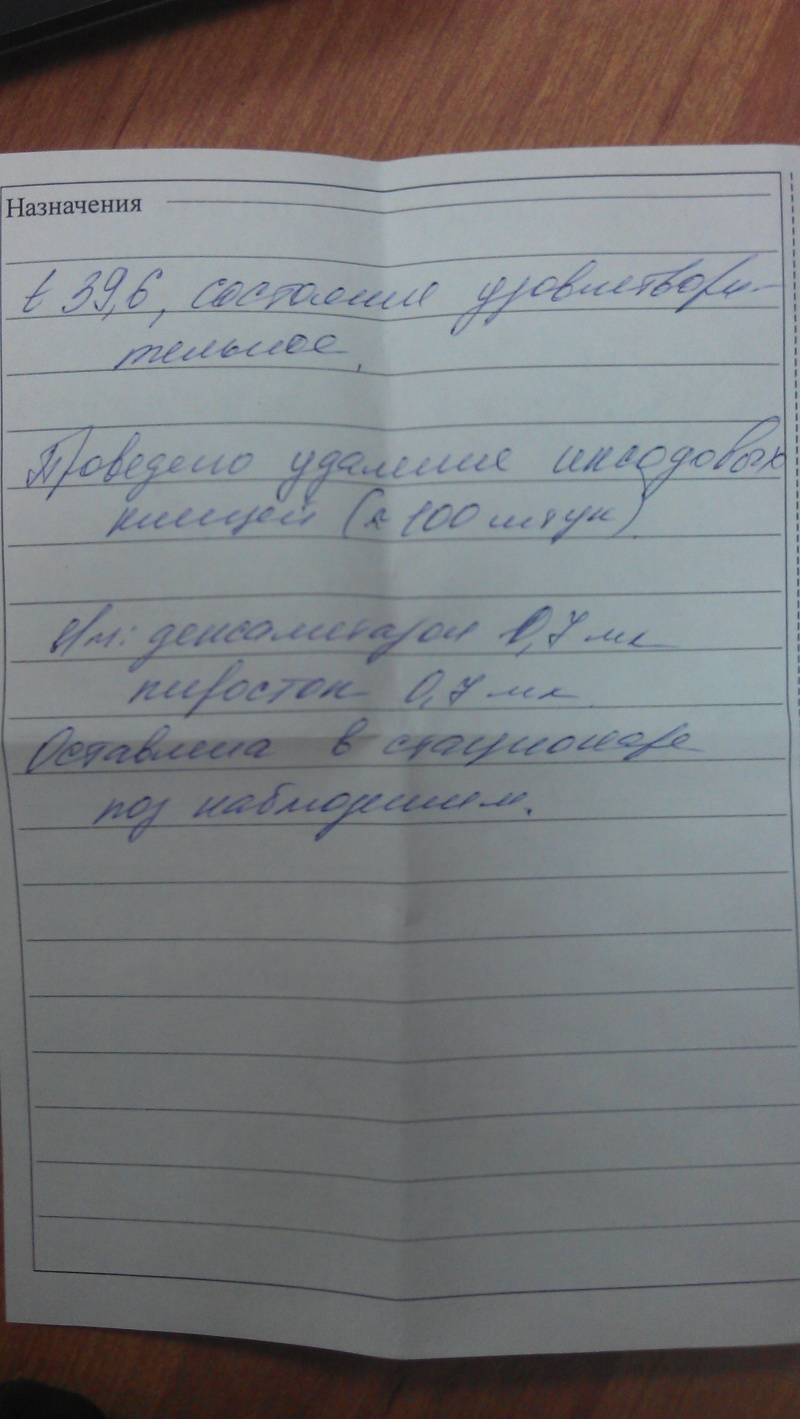 Назначения
t 39,6, состояние удовлетвори-
тельное.
Проведено удаление иксодовых
клещей (≈ 100 штук)
В/м: дексаметазон 0,7 мл
пиростоп 0,7 мл
Оставлена в стационаре
под наблюдением.